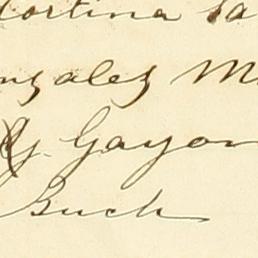 Cortina
nzalez M
y. Gayon
Buch